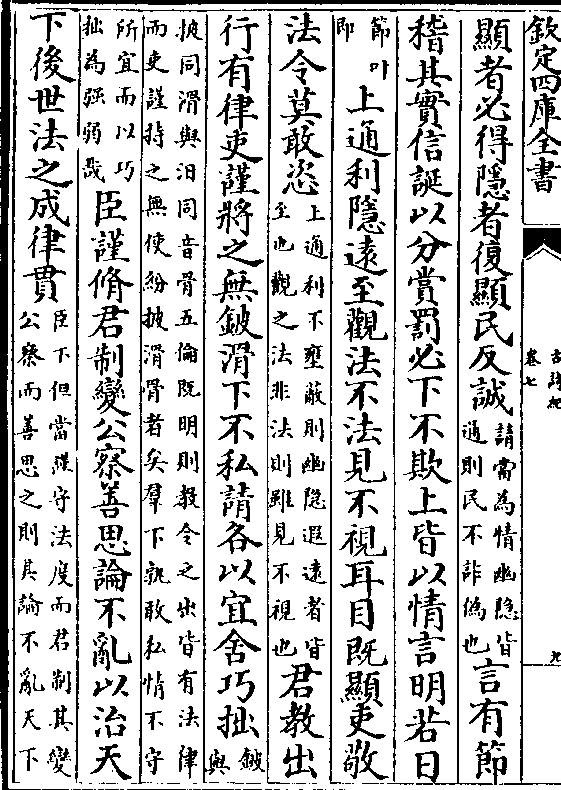 欽定四庫全書
古詩紀
卷七
九
顯者必得隱者復顯民反誠請當為情幽隱皆通則民不詐偽也言有節
稽其實信誕以分賞罰必下不欺上皆以情言明若日
節叶即上通利隱遠至觀法不法見不視耳目既顯吏敬
法令莫敢恣上通利不壅蔽則幽隱遐遠者皆至也觀之法非法則雖見不視也君教出
行有律吏謹將之無鈹滑下不私請各以宜舍巧拙鈹與
披同滑與汨同音骨五倫既明則教令之出皆有法律而吏謹持之無使紛披滑骨者矣羣下孰敢私情不守
所宜而以巧拙為强弱哉臣謹脩君制變公察善思論不亂以治天
下後世法之成律貫臣下但當謹守法度而君制其變公察而善思之則其論不亂天下